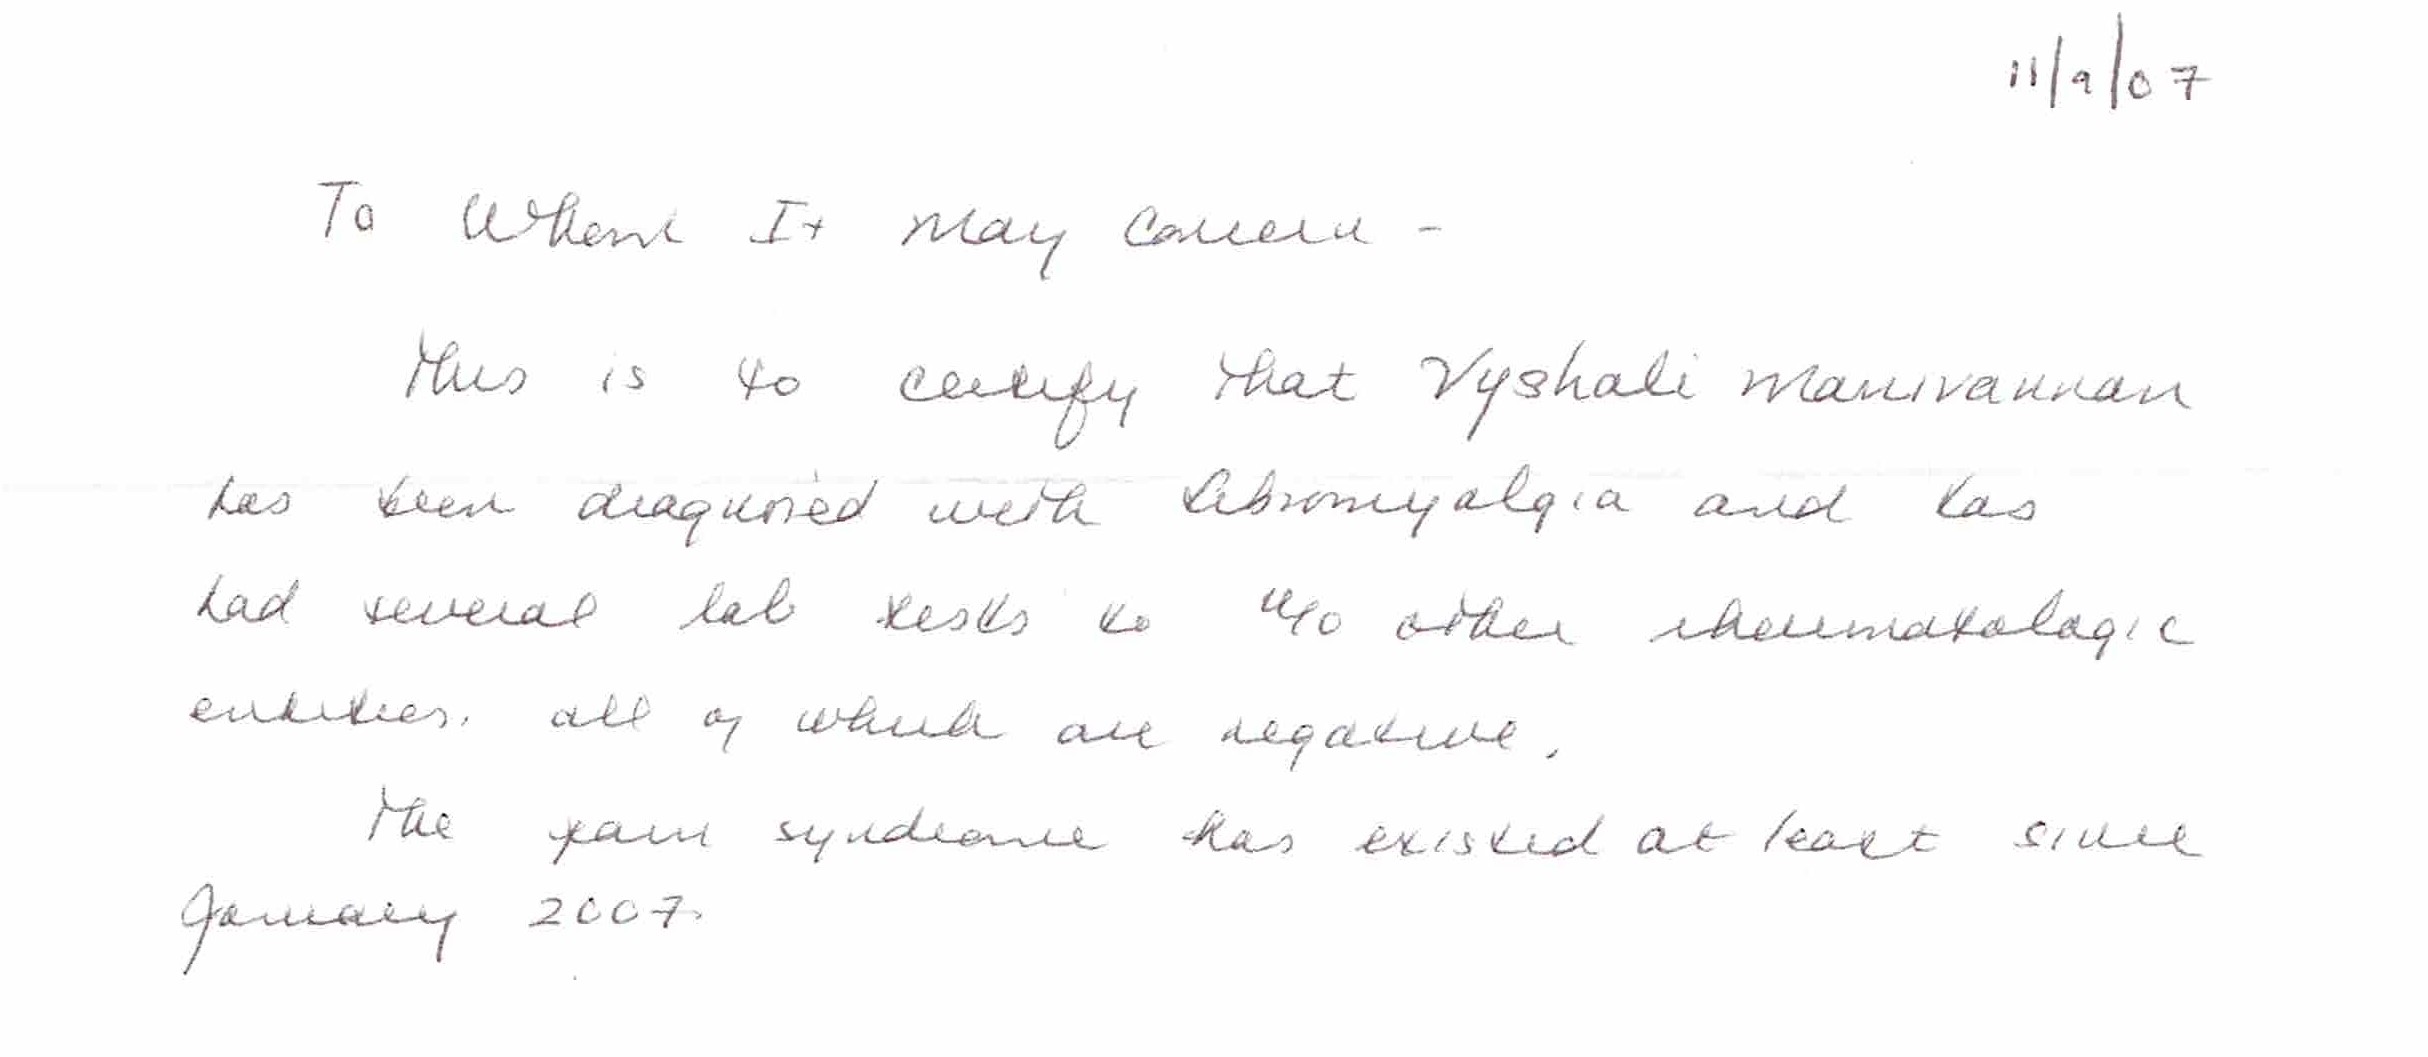 11/9/07
To Whom It May Concern -
This is to certify that Vyshali Manivannan
has been diagnosed with fibromyalgia and has
had several lab tests to r/o other rheumatologic
entities. all of which are negative.
The pain syndrome has existed at least since
January 2007.